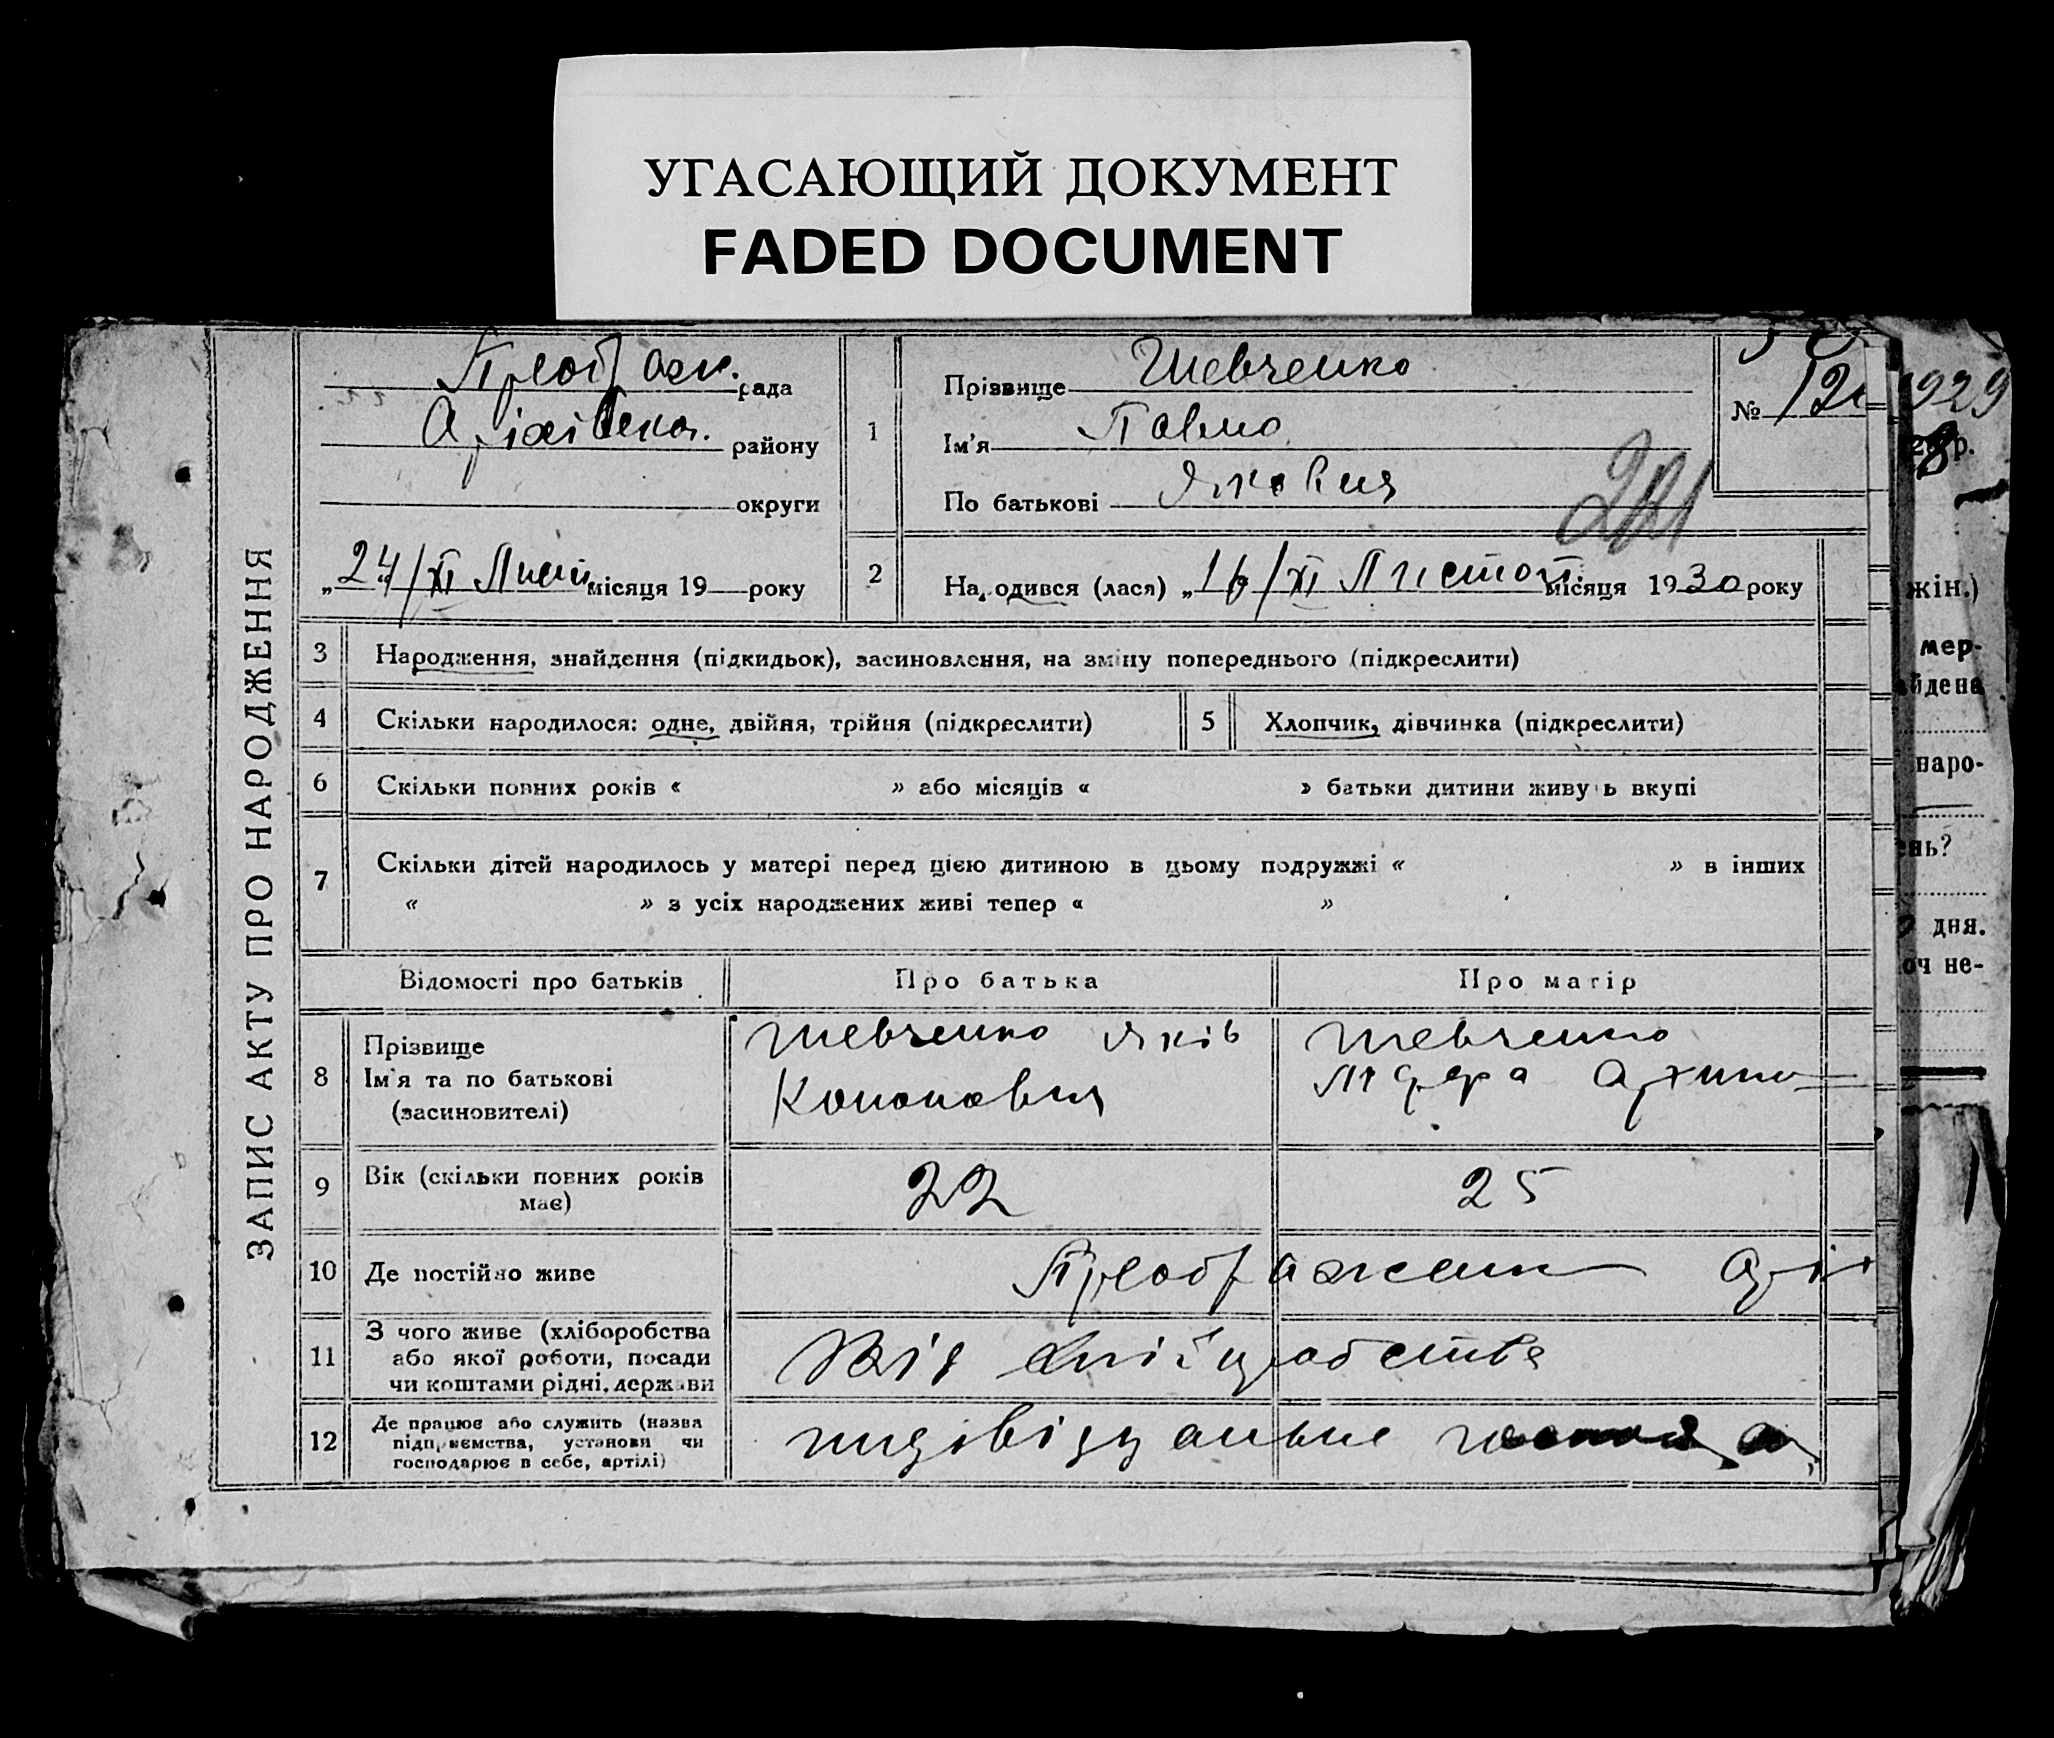 УГАСАЮЩИЙ ДОКУМЕНТ
FADED DOCUMENT
ЗАПИС АКТУ ПРО НАРОДЖЕННЯ
Преображ. рада
району
округи
„24/XI Лист місяця 19 року
1
Прізвище Шевченко
Ім'я Павло
По батькові Якович
№
1929
2
Народився (лася) „16/XI Листоп. місяця 1930 року
3 Народження, знайдення (підкидьок), засиновлення, на зміну попереднього (підкреслити)
4 Скільки народилося: одне, двійня, трійня (підкреслити)
5 Хлопчик, дівчинка (підкреслити)
6 Скільки повних років « » або місяців « » батьки дитини живуть вкупі
7 Скільки дітей народилось у матері перед цією дитиною в цьому подружжі « » в інших
« » з усіх народжених живі тепер « »
Відомості про батьків Про батька Про матір
8 Прізвище
Ім'я та по батькові
(засиновителі)
Шевченко Яків
Кононович
Шевченко
9 Вік (скільки повних років
має)
22 25
10 Де постійно живе
Преображенк
11 З чого живе (хліборобства
або якої роботи, посади
чи коштами рідні, держави
Від хліборобства
12 Де працює або служить (назва
підприємства, установи чи
господарює в себе, артілі)
індівідуальне
жін.)
мер-
наро-
дня.